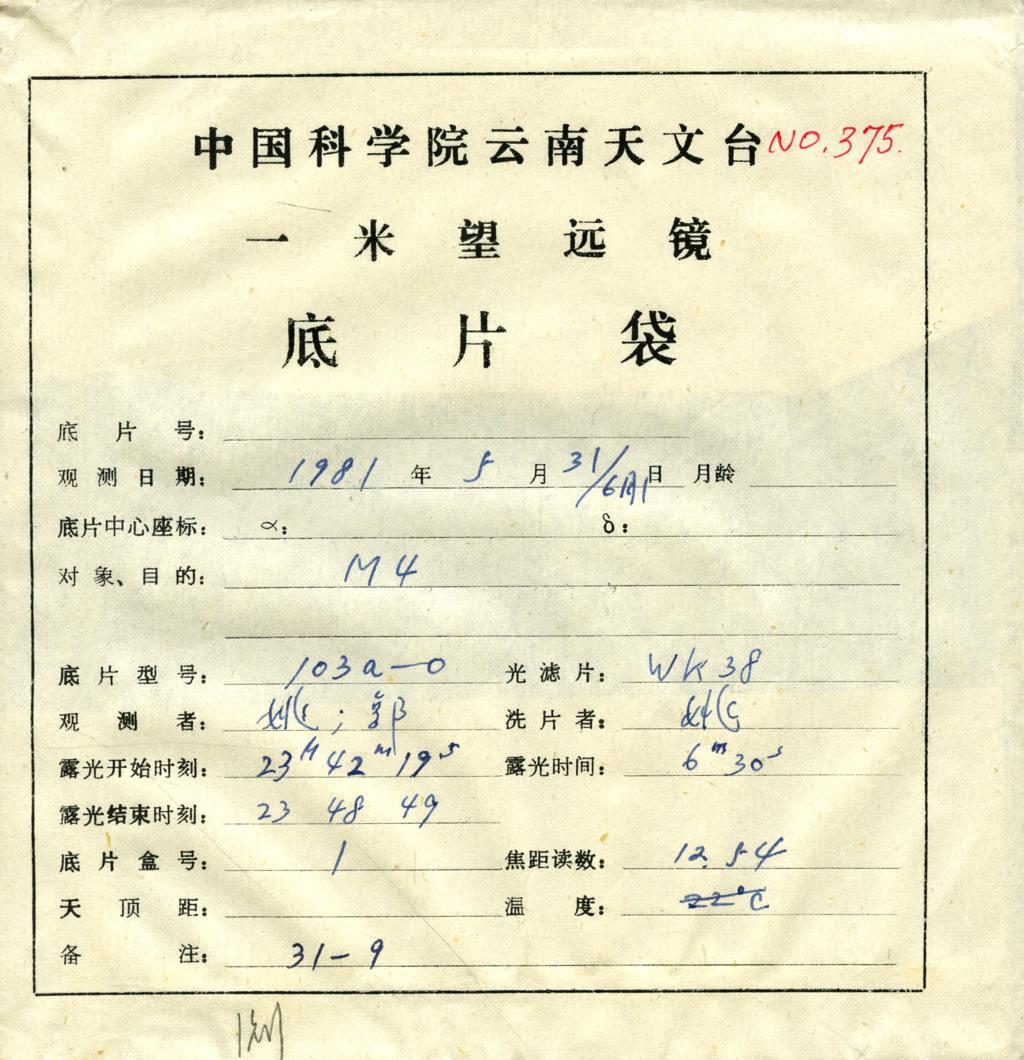 中国科学院云南天文台 NO.375.
一米望远镜
底片袋
底片号：
观测日期： 1981 年 5 月 31/6月1 日 月龄
底片中心座标： α： δ：
对象、目的： M4
底片型号： 103a-O 光滤片： WK38
观测者： ；郭 洗片者：
露光开始时刻： 23H 42m 19s 露光时间： 6m 30s
露光结束时刻： 23 48 49
底片盒号： 1 焦距读数： 12.54
天顶距： 温度： 22°C
备注： 31-9